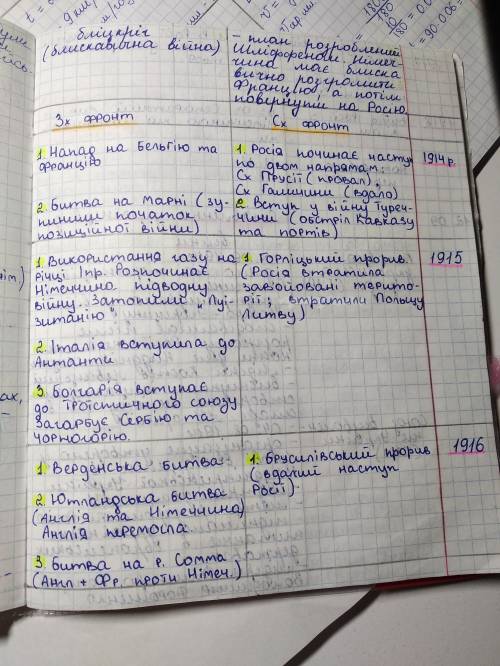 бліцкріг
(блискавична війна)
- план розроблений
Шліффеном. Німеч-
чина має блиска
вично розгромити
Францію, а потім
повернути на Росію.
Зх фронт
Сх фронт
1. Напад на Бельгію та
Францію
2. Битва на Марні (зу-
пинили початок
позиційної війни)
1. Росія починає наступ
по двом напрямам:
Сх Прусії (провал),
Сх Галичини (вдало)
2. Вступ у війну Туреч-
чини (обстріл Кавказу
та портів)
1914 р.
1. Використання газу на
річці Іпр. Розпочинає
Німеччина підводну
війну. Затопили „Луі-
зитанію"
2. Італія вступила до
Антанти
3. Болгарія вступає
до Троїстичного союзу
Загарбує Сербію та
Чорногорію.
1. Горліцький прорив.
(Росія втратила
завойовані терито-
рії; втратили Польщу
Литву)
1915
1. Верденська битва
2. Ютландська битва
(Англія та Німеччина)
Англія перемогла.
3. Битва на р. Сомма
(Англ + Фр. проти Німеч.)
1. Брусилівський прорив
(вдалий наступ
Росії).
1916